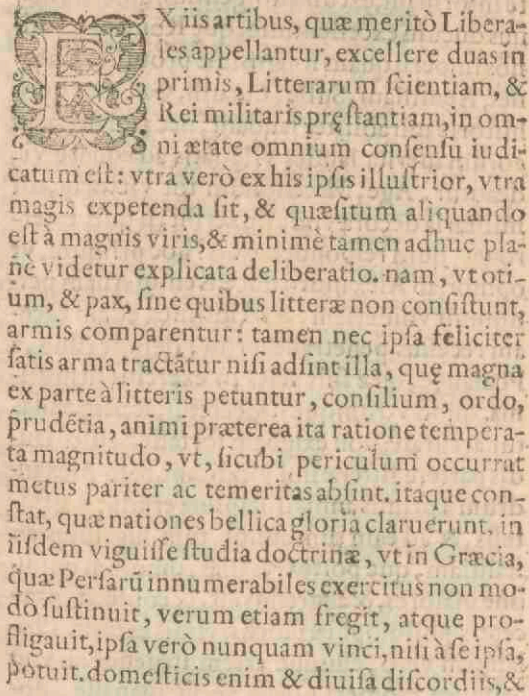 EX iis artibus, quæ meritò Libera-
les appellantur, excellere duas in
primis, Litterarum ſcientiam, &
Rei militaris pręſtantiam, in om-
ni ætate omnium conſenſu iudi-
catum eſt: vtra verò ex his ipſis illuſtrior, vtra
magis expetenda ſit, & quæſitum aliquando
eſt à magnis viris, & minimè tamen adhuc pla-
nè videtur explicata deliberatio. nam, vt oti-
um, & pax, ſine quibus litteræ non conſiſtunt,
armis comparentur: tamen nec ipſa feliciter
ſatis arma tractãtur niſi adſint illa, quę magna
ex parte à litteris petuntur, conſilium, ordo,
prudẽtia, animi præterea ita ratione tempera-
ta magnitudo, vt, ſicubi periculum occurrat
metus pariter ac temeritas abſint. itaque con-
ſtat, quæ nationes bellica gloria claruerunt, in
iiſdem viguiſſe ſtudia doctrinæ, vt in Græcia,
quæ Perſarũ innumerabiles exercitus non mo-
dò ſuſtinuit, verum etiam fregit, atque pro-
fligauit, ipſa verò nunquam vinci, niſi à ſe ipſa,
potuit. domeſticis enim & diuiſa diſcordiis, &